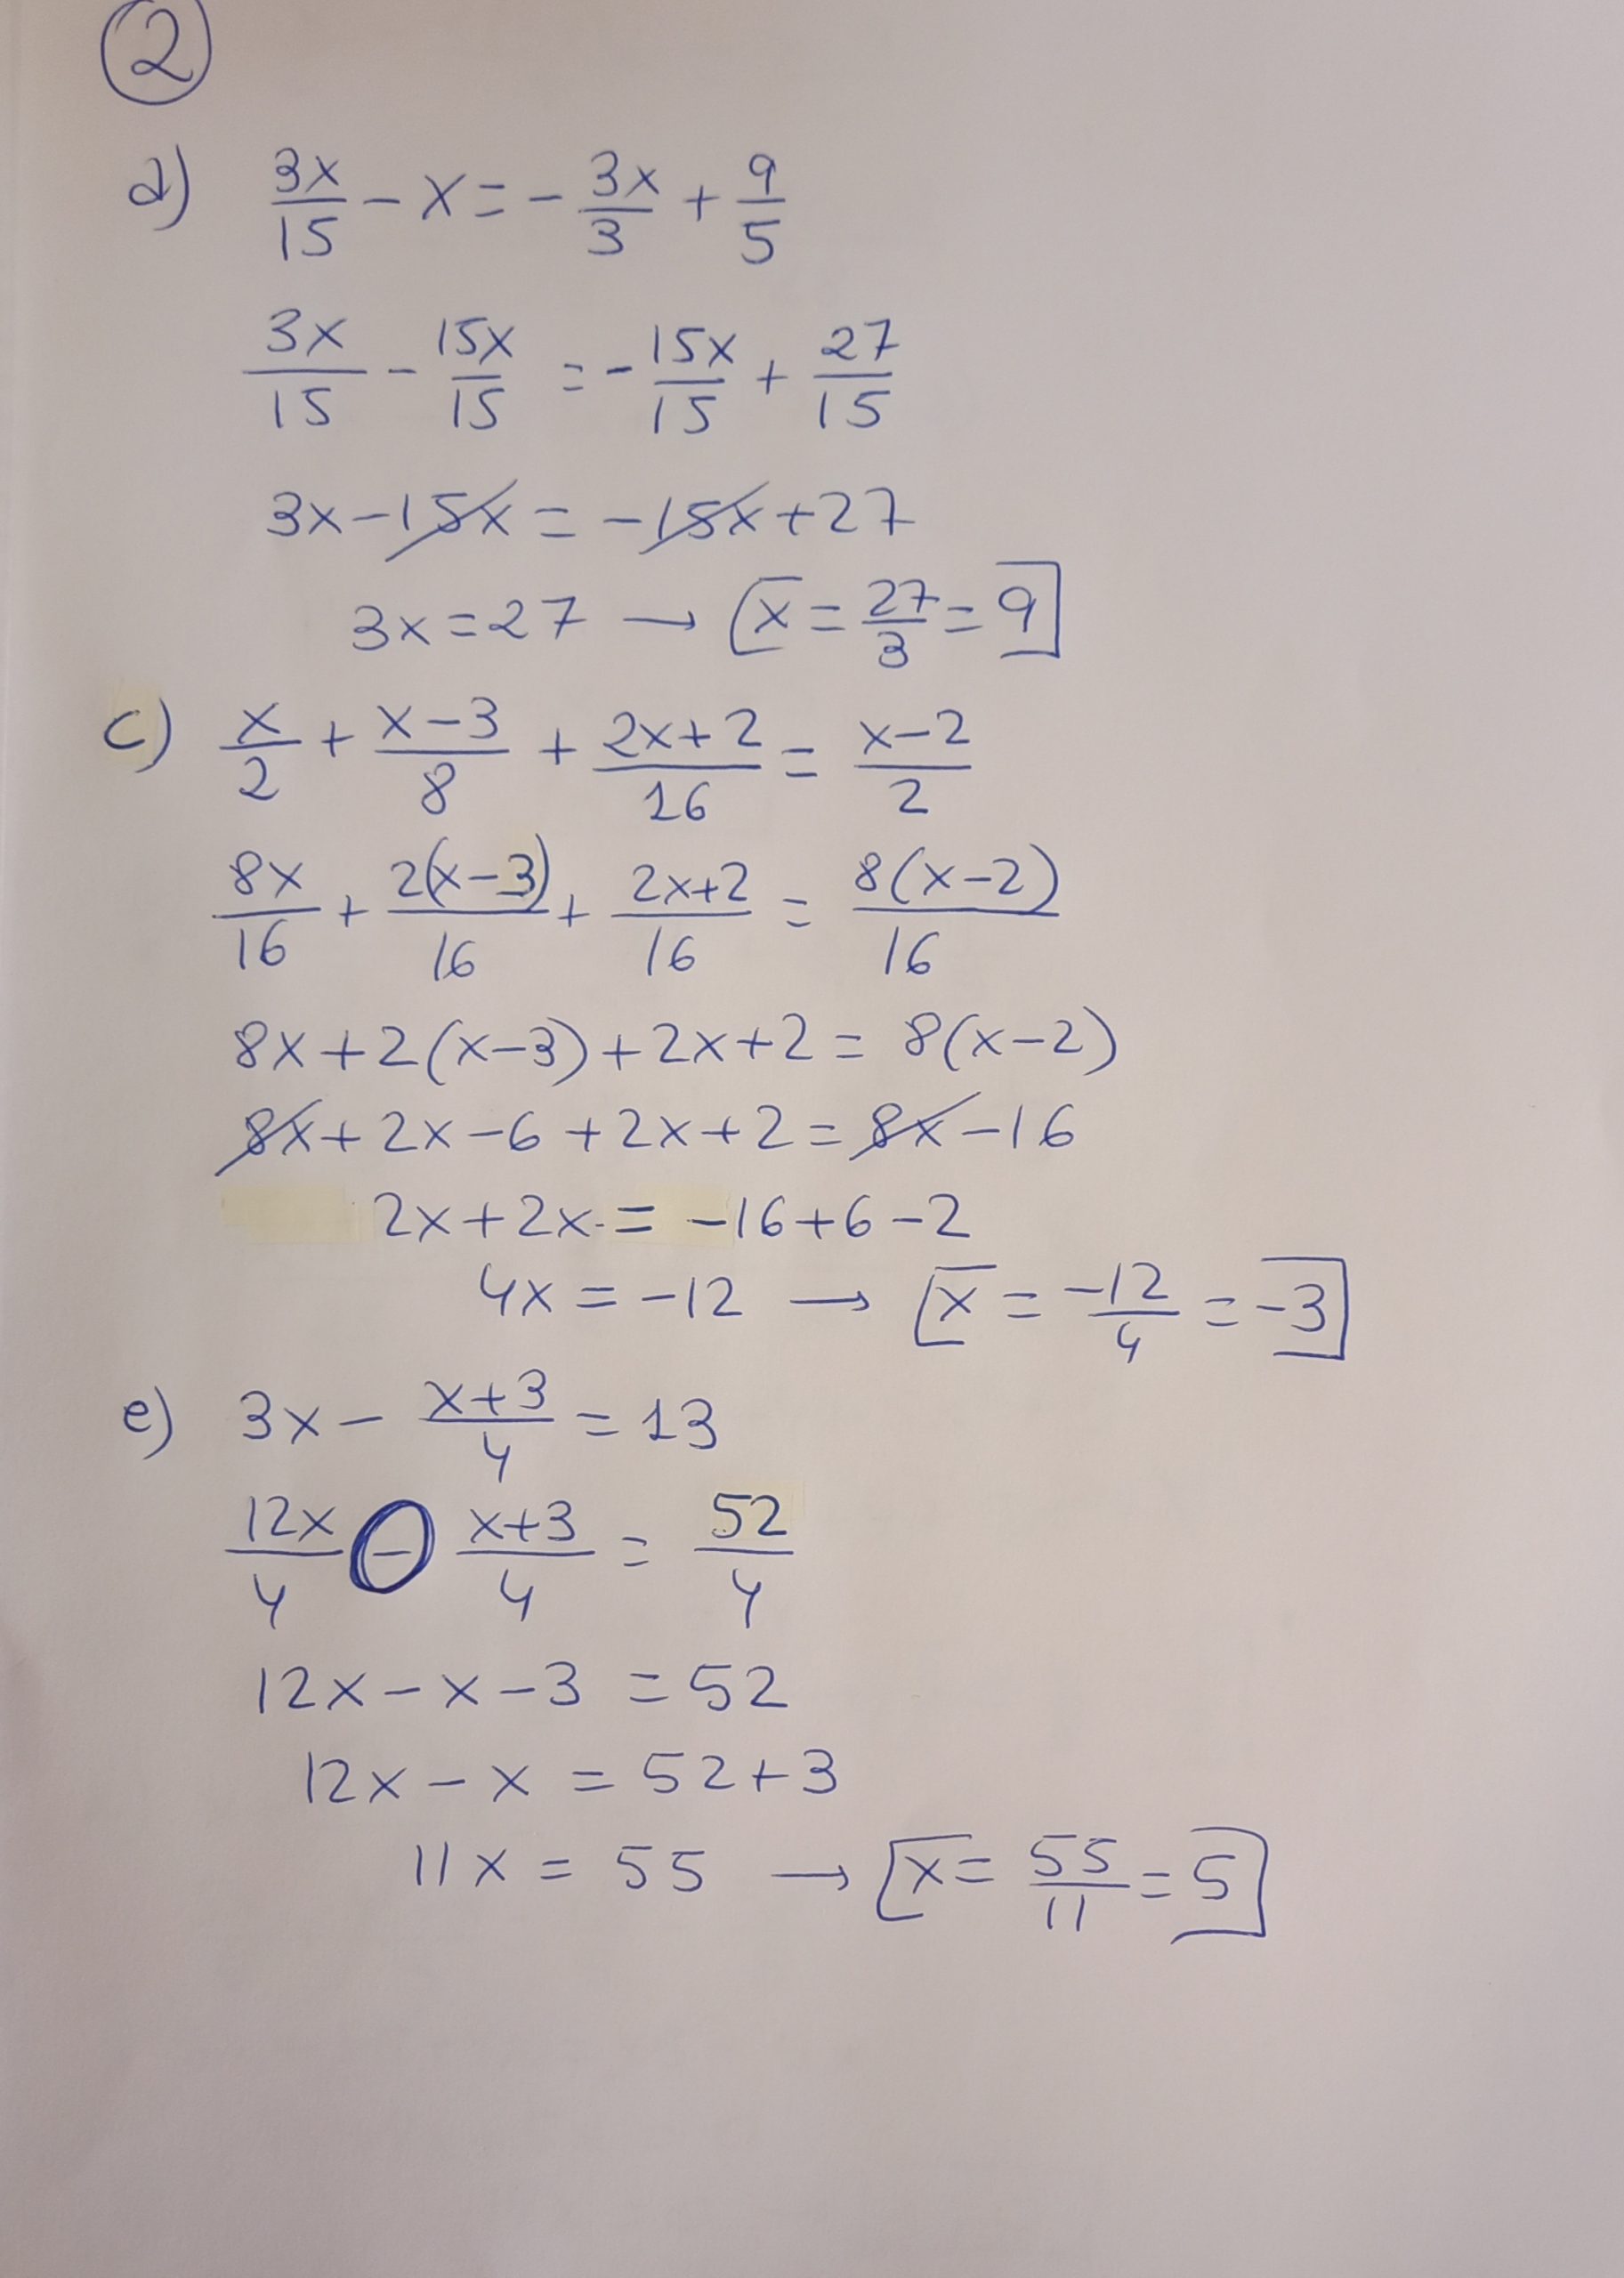 2
a) 3x/15 - x = - 3x/3 + 9/5
3x/15 - 15x/15 = - 15x/15 + 27/15
3x - 15x = - 15x + 27
3x = 27 → x = 27/3 = 9
c) x/2 + x-3/8 + 2x+2/16 = x-2/2
8x/16 + 2(x-3)/16 + 2x+2/16 = 8(x-2)/16
8x + 2(x-3) + 2x + 2 = 8(x-2)
8x + 2x - 6 + 2x + 2 = 8x - 16
2x + 2x = -16 + 6 - 2
4x = -12 → x = -12/4 = -3
e) 3x - x+3/4 = 13
12x/4 - x+3/4 = 52/4
12x - x - 3 = 52
12x - x = 52 + 3
11x = 55 → x = 55/11 = 5